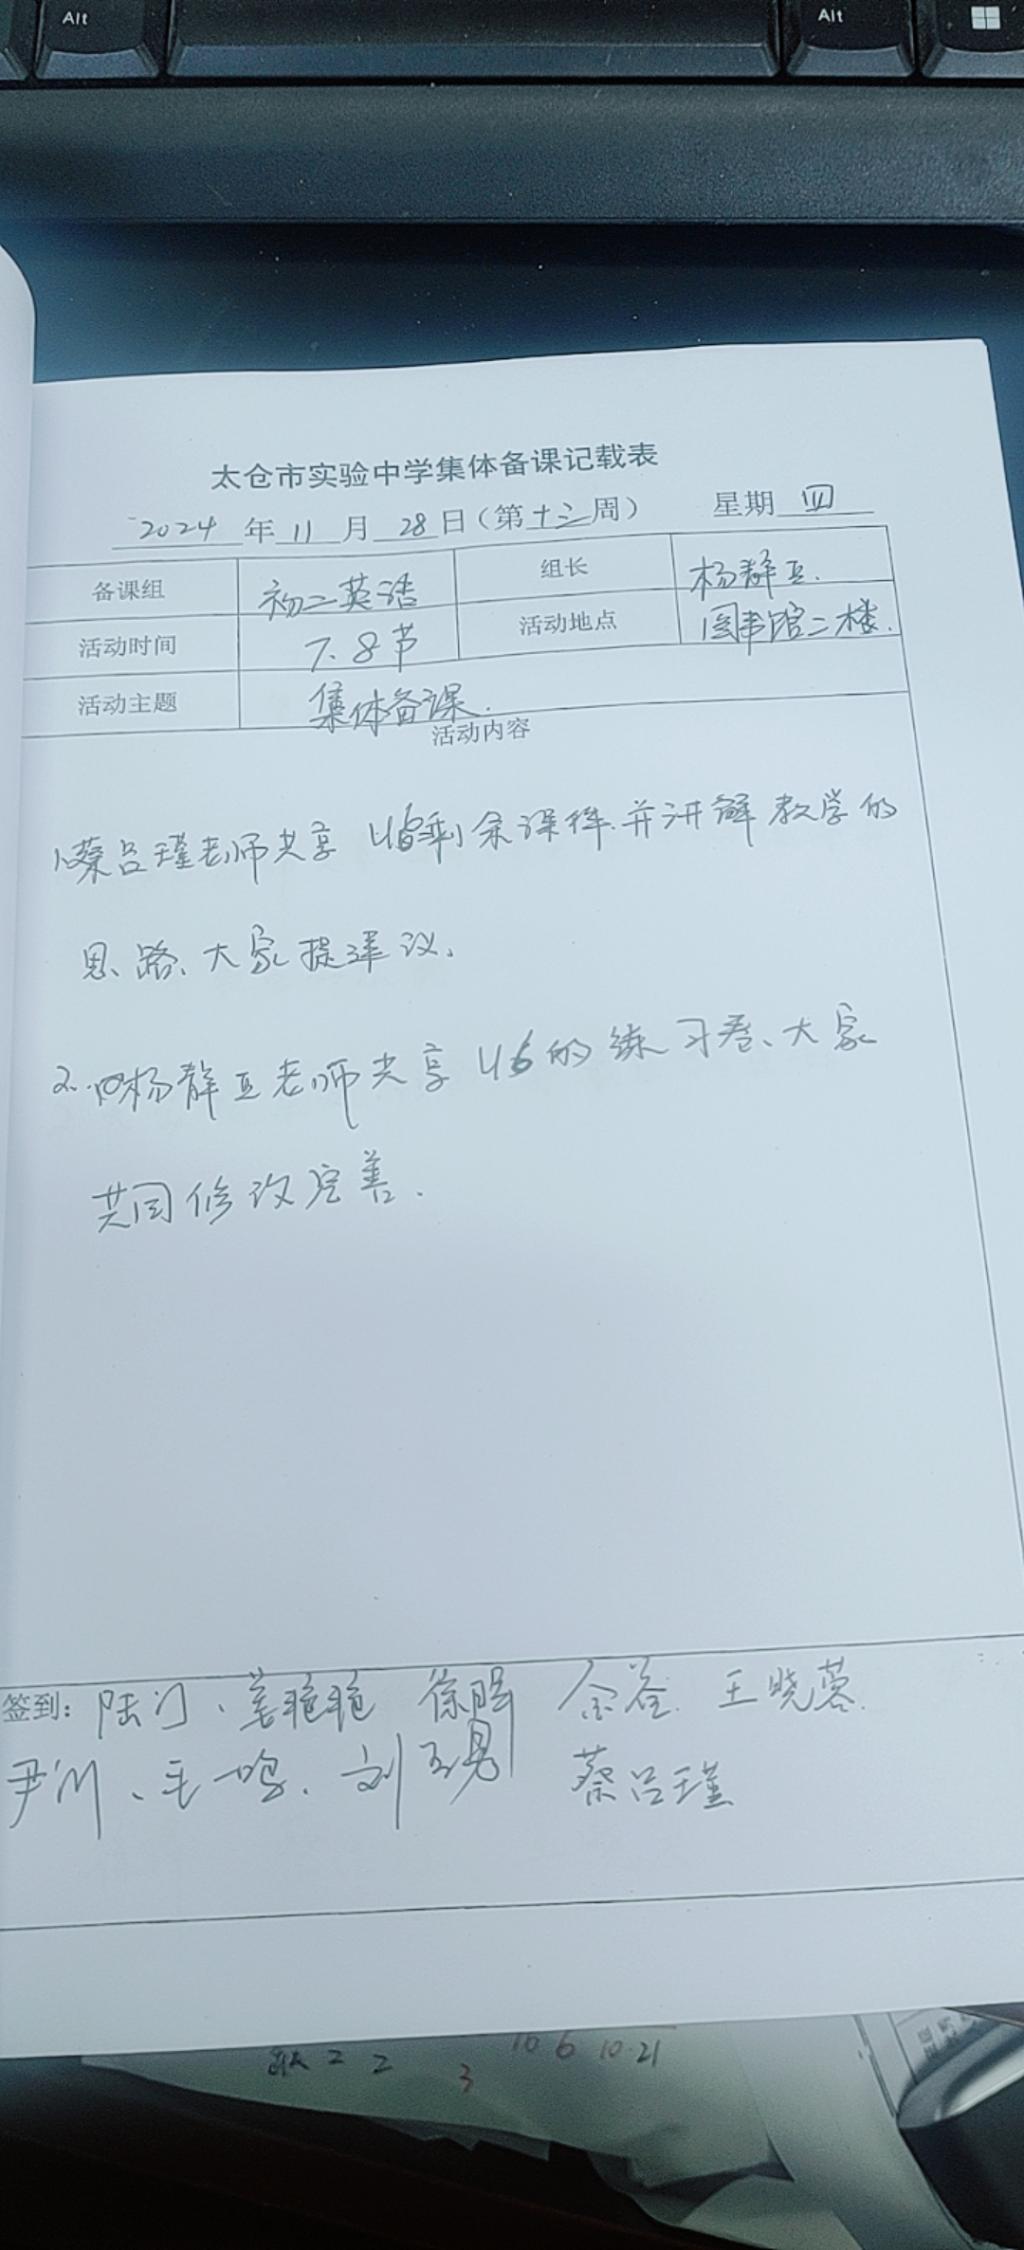 Alt Alt
太仓市实验中学集体备课记载表
2024 年 11 月 28 日（第十三周） 星期 四
备课组 初二英语 组长 杨静亚.
活动时间 7.8节 活动地点 图书馆二楼.
活动主题 集体备课.
活动内容
1.蔡吕瑾老师共享 U6剩余课件.并讲解教学的
思路、大家提建议.
2.杨静亚老师共享 U6的练习卷、大家
共同修改完善.
签到: 陆 、姜艳艳 徐晖 王晓蓉.
尹 、毛一鸣、刘 蔡吕瑾
2 2 3 10 6 10.21